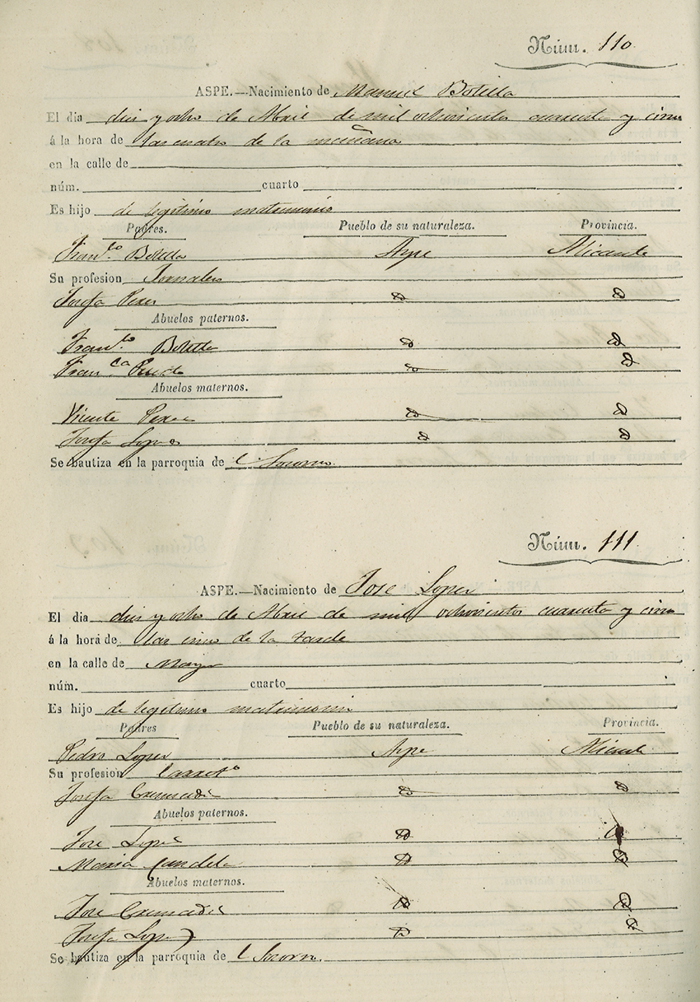 Núm. 110
ASPE.—Nacimiento de Manuel Botella
El dia diez y ocho de Abril de mil ochocientos cuarenta y cinco
á la hora de las cuatro de la mañana
en la calle de
núm. cuarto
Es hijo de legitimo matrimonio
Padres. Pueblo de su naturaleza. Provincia.
Fran.co Botella Aspe Alicante
Su profesion Jornalero
Josefa Perez
Abuelos paternos.
Fran.co Botella
Fran.ca
Abuelos maternos.
Vicente Perez
Josefa Lopez
Se bautiza en la parroquia de l Socorro
Núm. 111
ASPE.—Nacimiento de Jose Lopez
El dia diez y ocho de Abril de mil ochocientos cuarenta y cinco
á la hora de las cinco de la tarde
en la calle de Mayor
núm. cuarto
Es hijo de legitimo matrimonio
Padres Pueblo de su naturaleza. Provincia.
Pedro Lopez Aspe Alicante
Su profesion
Josefa Cremades
Abuelos paternos.
Jose Lopez
Maria Candela
Abuelos maternos.
Jose Cremades
Josefa Lopez
Se bautiza en la parroquia de l Socorro